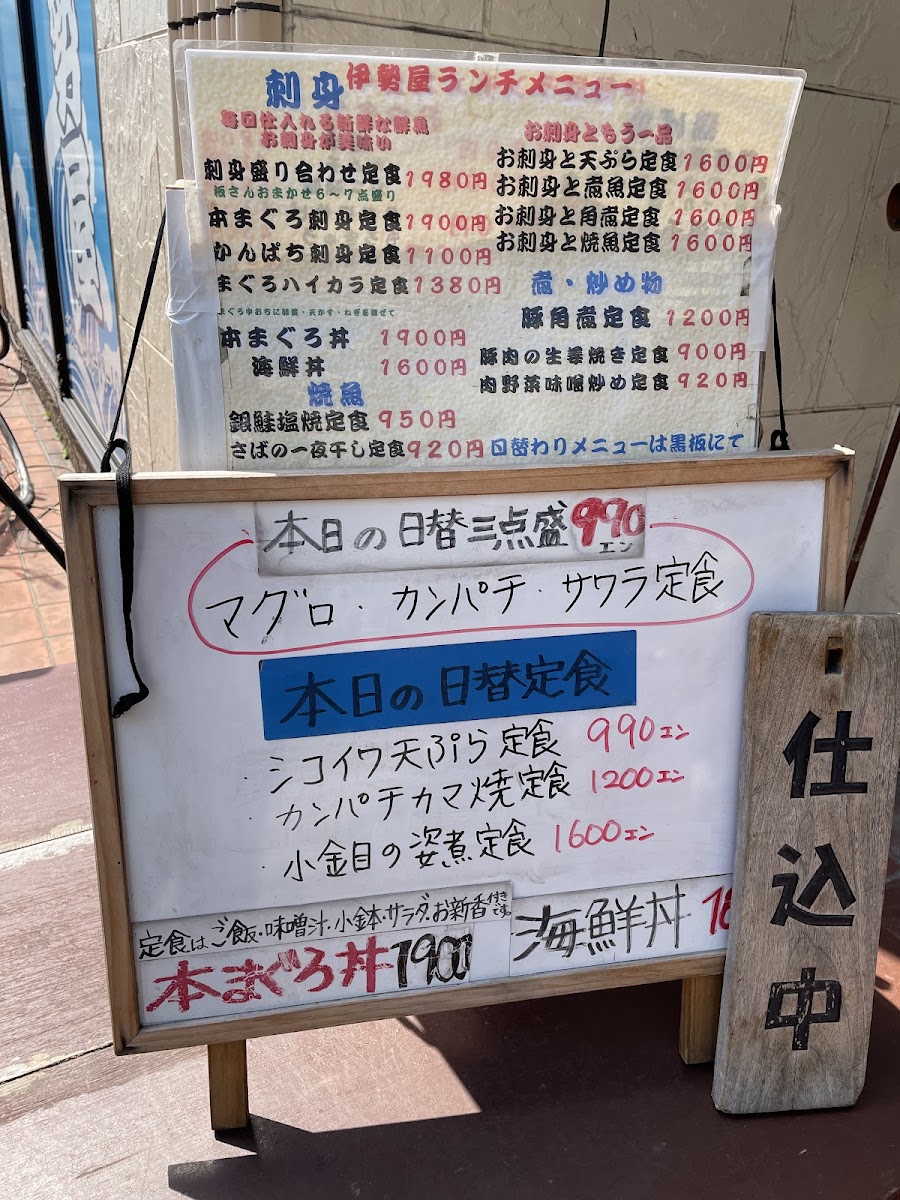 伊勢屋ランチメニュー
刺身
毎日仕入れる新鮮な鮮魚
お刺身が美味い
刺身盛り合わせ定食 1980円
板さんおまかせ6~7点盛り
本まぐろ刺身定食 1900円
かんぱち刺身定食 1100円
まぐろハイカラ定食 1380円
本まぐろ丼 1900円
海鮮丼 1600円
焼魚
銀鮭塩焼定食 950円
さばの一夜干し定食 920円
お刺身ともう一品
お刺身と天ぷら定食 1600円
お刺身と煮魚定食 1600円
お刺身と角煮定食 1600円
お刺身と焼魚定食 1600円
煮・炒め物
豚角煮定食 1200円
豚肉の生姜焼き定食 900円
肉野菜味噌炒め定食 920円
日替わりメニューは黒板にて
本日の日替三点盛 990エン
マグロ・カンパチ・サワラ定食
本日の日替定食
・シコイワ天ぷら定食 990エン
・カンパチカマ焼定食 1200エン
・小金目の姿煮定食 1600エン
定食は、ご飯・味噌汁・小鉢・サラダ・お新香付きです。
本まぐろ丼 1900
海鮮丼
仕込中